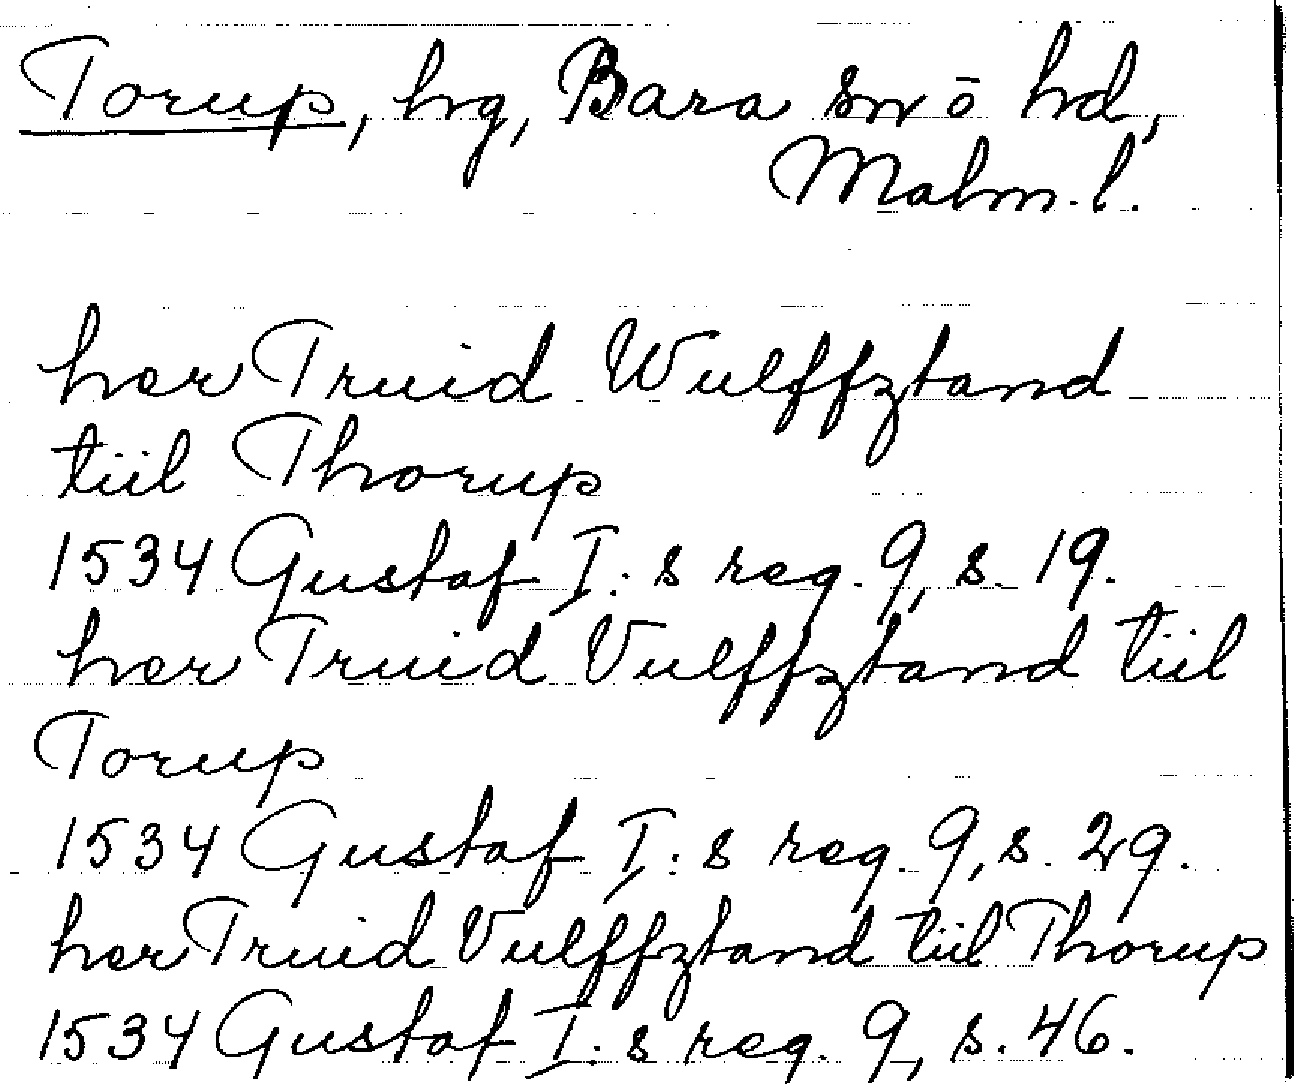 Torup, hg, Bara sn o hd,
Malm. l.
her Truid Wulffztand
tiil Thorup
1534 Gustaf I:s reg. 9, s. 19.
her Truid Vulffztand tiil
Torup
1534 Gustaf I:s reg. 9, s. 29.
her Truid Vulffztand tiil Thorup
1534 Gustaf I:s reg. 9, s. 46.